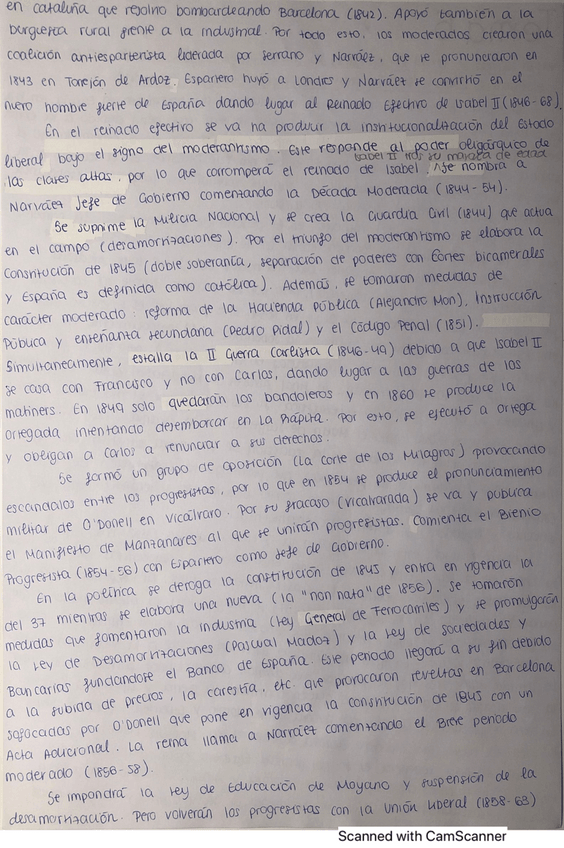 en cataluña que resolvió bombardeando Barcelona (1842). Apoyó también a la
burguesía rural frente a la industrial. Por todo esto, los moderados crearon una
coalición antiesparterista liderada por Serrano y Narváez, que se pronunciaron en
1843 en Torrejón de Ardoz. Espartero huyó a Londres y Narváez se convirtió en el
nuevo hombre fuerte de España dando lugar al Reinado Efectivo de Isabel II (1846-68).
En el reinado efectivo se va ha producir la institucionalización del Estado
liberal bajo el signo del moderantismo. Este responde al poder oligárquico de
Isabel II tras su mayoría de edad
las clases altas, por lo que corromperá el reinado de Isabel. Se nombra a
Narváez Jefe de Gobierno comentando la Década Moderada (1844-54).
Se suprime la Milicia Nacional y se crea la Guardia Civil (1844) que actua
en el campo (desamortizaciones). Por el triunfo del moderantismo se elabora la
Constitución de 1845 (doble soberanía, separación de poderes con Cortes bicamerales
y España es definida como católica). Además, se tomaron medidas de
carácter moderado: reforma de la Hacienda Pública (Alejandro Mon), Instrucción
Pública y enseñanza secundaria (Pedro Pidal) y el Código Penal (1851).
Simultaneamente, estalla la II Guerra Carlista (1846-49) debido a que Isabel II
se casa con Francisco y no con Carlos, dando lugar a las guerras de los
matiners. En 1849 solo quedarán los bandoleros y en 1860 se produce la
ortegada intentando desembarcar en La Rápita. Por esto, se ejecutó a Ortega
y obligan a Carlos a renunciar a sus derechos.
Se formó un grupo de oposición (La Corte de los Milagros) provocando
escandalos entre los progresistas, por lo que en 1854 se produce el pronunciamiento
militar de O'Donell en Vicálvaro. Por su fracaso (Vicalvarada) se va y publica
el Manifiesto de Manzanares al que se unirán progresistas. Comienta el Bienio
Progresista (1854-56) con Espartero como Jefe de Gobierno.
En la política se deroga la constitución de 1845 y entra en vigencia la
del 37 mientras se elabora una nueva (la "non nata" de 1856). Se tomarón
medidas que fomentaron la industria (Ley General de Ferrocarriles) y se promulgaron
la Ley de Desamortizaciones (Pascual Madoz) y la Ley de Sociedades y
Bancarias fundandose el Banco de España. Este periodo llegará a su fin debido
a la subida de precios, la carestía, etc. que provocaron revueltas en Barcelona
sofocadas por O'Donell que pone en vigencia la constitución de 1845 con un
Acta Adicional. La reina llama a Narváez comentando el Breve periodo
moderado (1856-58).
Se impondrá la Ley de Educación de Moyano y suspensión de la
desamortización. Pero volverán los progresistas con la Unión Liberal (1858-63)
Scanned with CamScanner